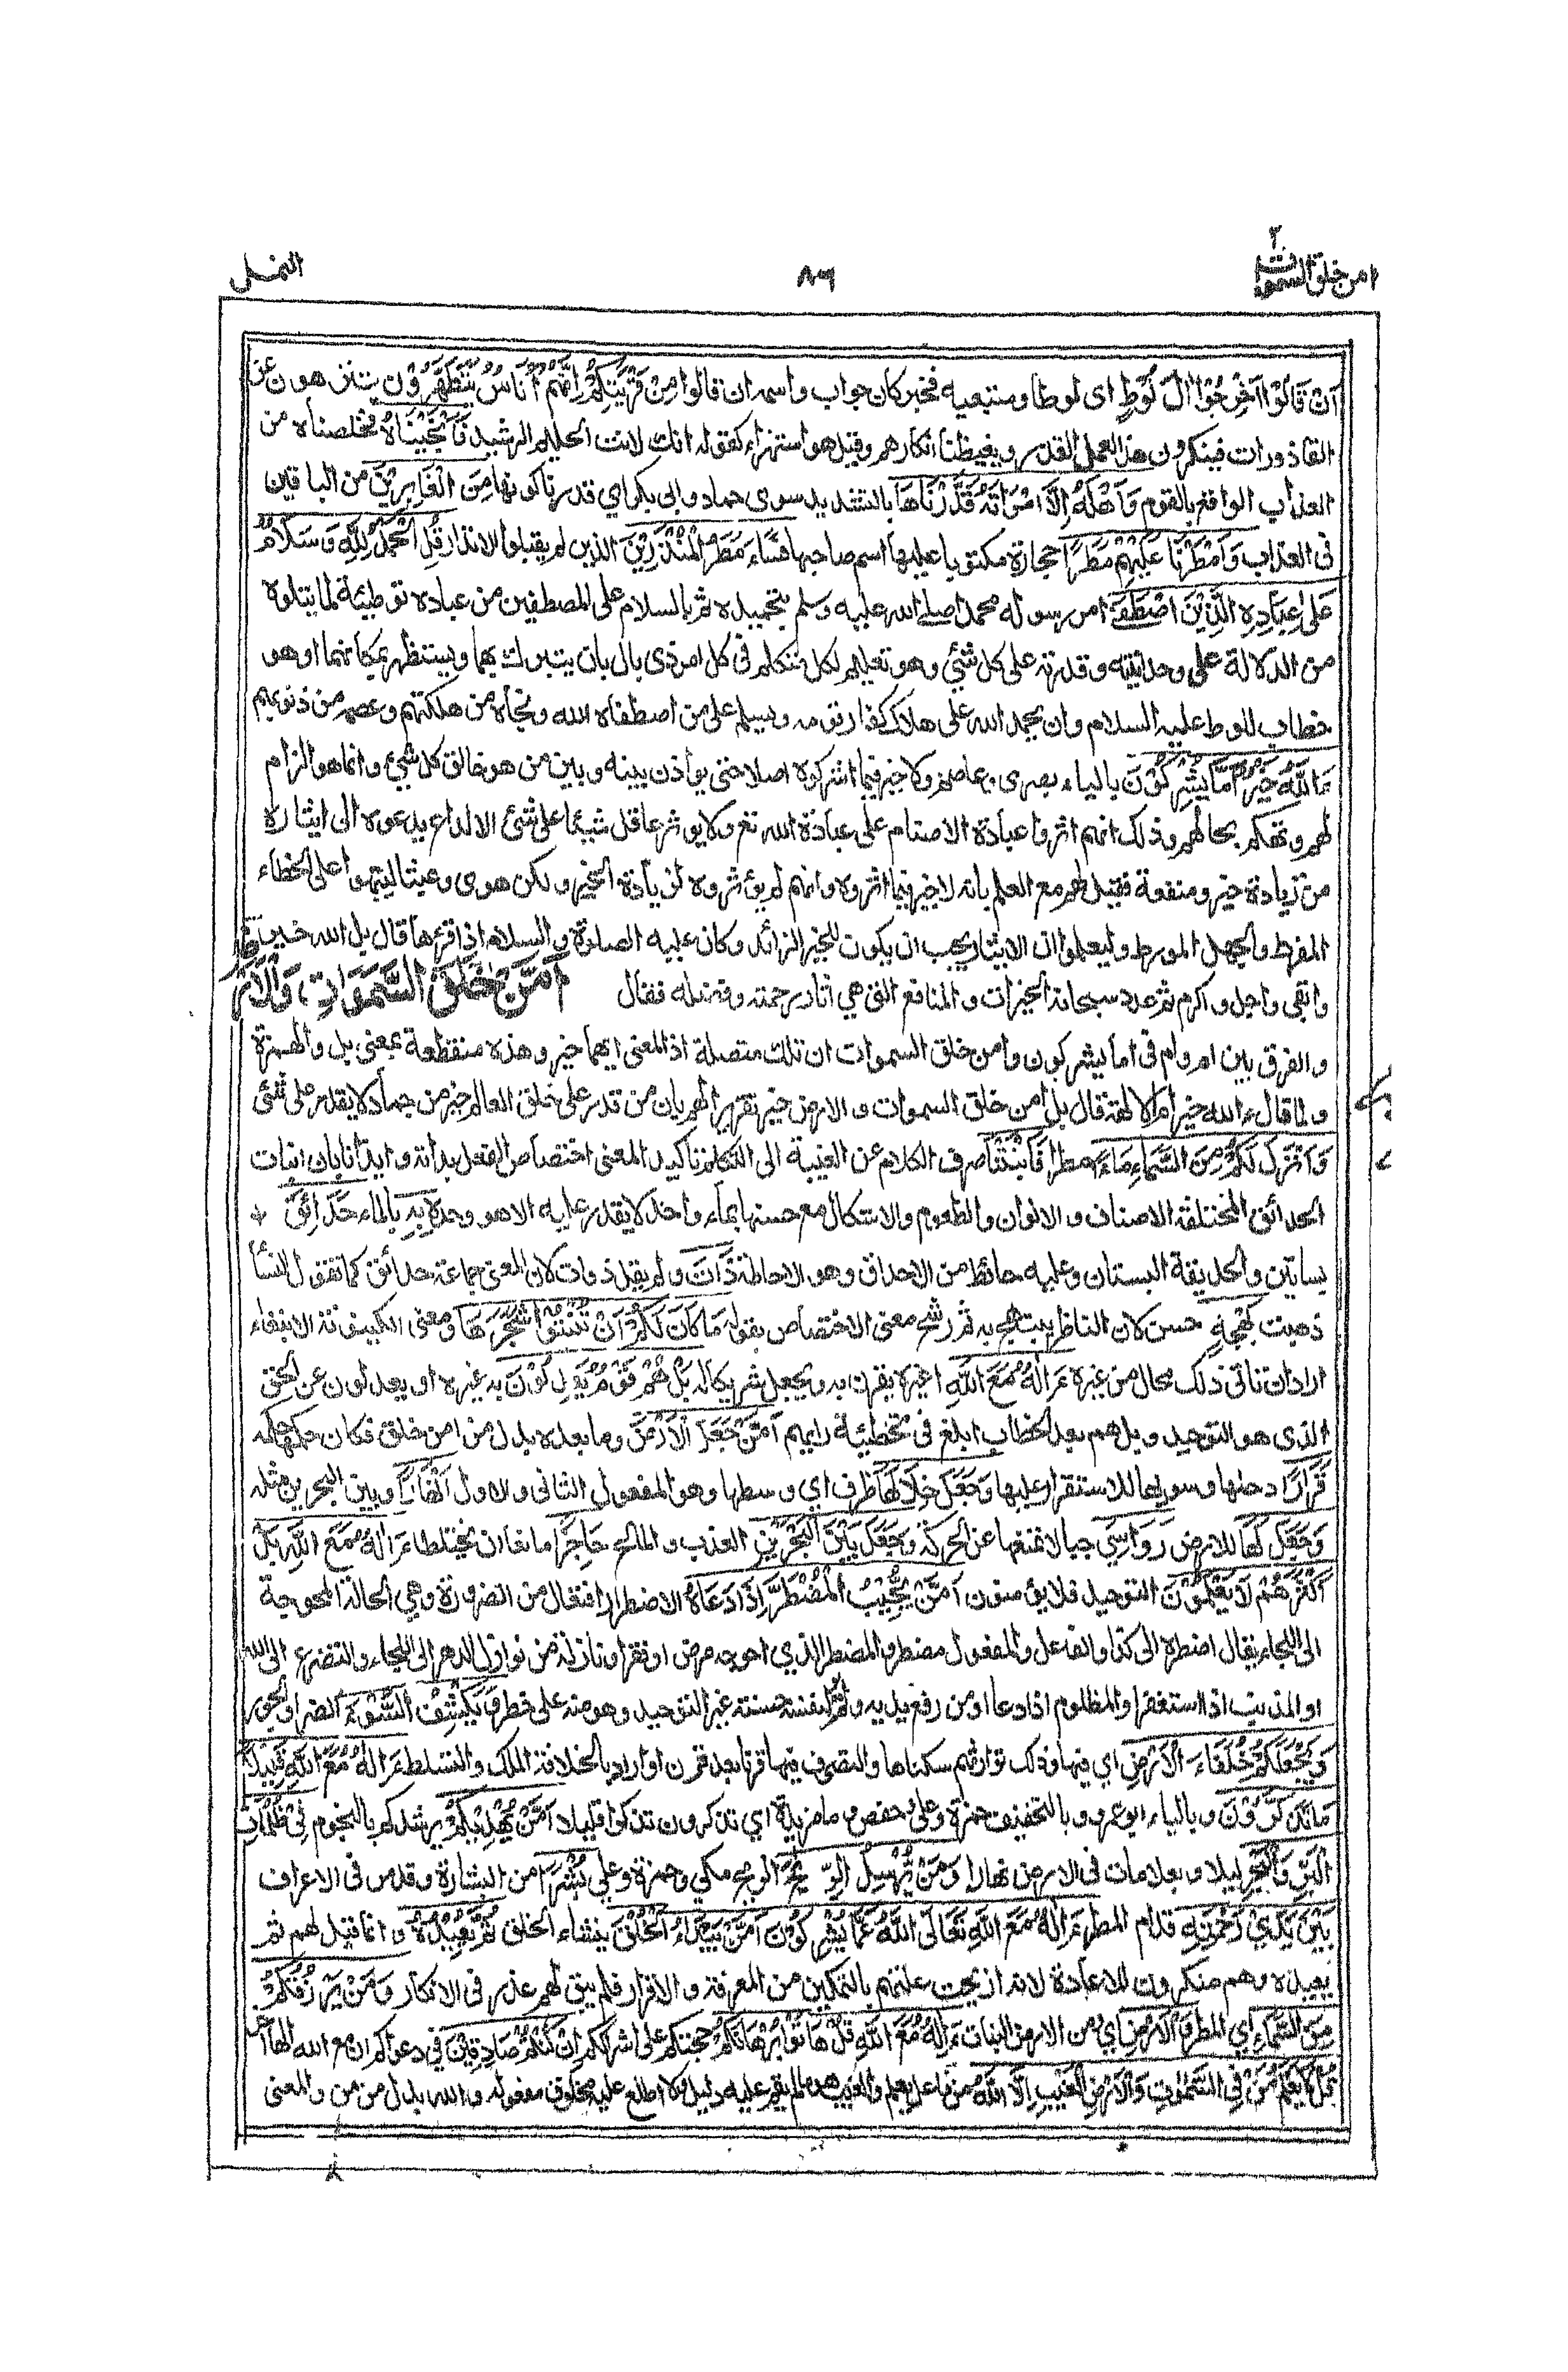 امن خلق السموت ٢
٨٦
النمل
اَنْ قَالُوْا اَخْرِجُوْا اٰلَ لُوْطٍ اى لوطا ومتبعيه فخبر كان جواب واسمه ان قالوا مِنْ قَرْيَتِكُمْ اِنَّهُمْ اُنَاسٌ يَّتَطَهَّرُوْنَ يتنزهون عن
القاذورات فينكرون هذا العمل القذر ويغيظنا انكارهم وقيل هو استهزاء كقوله انك لانت الحليم الرشيد فَاَنْجَيْنَاهُ فخلصناه من
العذاب الواقع بالقوم وَاَهْلَهُ اِلَّا امْرَاَتَهُ قَدَّرْنَاهَا بالتشديد سوى حماد وابى بكر اي قدرنا كونها مِنَ الْغَابِرِيْنَ من الباقين
فى العذاب وَاَمْطَرْنَا عَلَيْهِمْ مَطَرًا حجارة مكتوبا عليها اسم صاحبها فَسَاءَ مَطَرُ الْمُنْذَرِيْنَ الذين لم يقبلوا الانذار قُلِ الْحَمْدُ لِلّٰهِ وَسَلَامٌ
عَلٰى عِبَادِهِ الَّذِيْنَ اصْطَفٰى امر رسوله محمدا صلے الله عليه وسلم بتحميده ثم بالسلام على المصطفين من عباده توطيئة لما يتلوه
من الدلالة على وحدانيته وقدرته على كل شئي وهو تعليم لكل متكلم فى كل امر ذى بال بان يتبرك بهما ويستظهر بمكانهما او هو
خطاب للوط عليه السلام وان يحمد الله على هلاك كفار قومه ويسلم على من اصطفاه الله ونجاه من هلكتهم وعصمه من ذنوبهم
ءَاللّٰهُ خَيْرٌ اَمَّا يُشْرِكُوْنَ بالياء بصرى وعاصم ولا خير فيما اشركوه اصلا حتى يوازن بينه وبين من هو خالق كل شيء وانما هو الزام
لهم وتهكم بحالهم وذلك انهم اثروا عبادة الاصنام على عبادة الله تع ولا يوثر عاقل شيئا على شئ الا لداع يدعوه الى ايثاره
من زيادة خير ومنفعة فقيل لهم مع العلم بانه لا خير فيما اثروه وانهم لم يؤثروه لزيادة الخير ولكن هوى وعبثا لينبهوا على الخطاء
المفرط والجهل المورط وليعلموا ان الايثار يجب ان يكون للخير الزائد وكان عليه الصلوة والسلام اذا قرءها قال بل الله خير
وابقى واجل واكرم ثم عدد سبحانه الخيرات والمنافع التى هي اثار رحمته وفضله فقال اَمَّنْ خَلَقَ السَّمٰوَاتِ وَالْاَرْضَ
والفرق بين ام وام فى اما يشركون وامن خلق السموات ان تلك متصلة اذ المعنى ايهما خير وهذه منقطعة بمعنى بل والهمزة
ولما قال ءالله خير ام الالهة قال بل امن خلق السموات والارض خير تقريرا لهم بان من قدر على خلق العالم خير من جماد لا يقدر على شئى
وَاَنْزَلَ لَكُمْ مِنَ السَّمَاءِ مَاءً مطرا فَاَنْبَتْنَا صرف الكلام عن الغيبة الى التكلم تاكيدا لمعنى اختصاص الفعل بذاته وايذانا بان انبات
الحدائق المختلفة الاصناف والالوان والطعوم والاشكال مع حسنها بماء واحد لا يقدر عليه الا هو وحده بِهِ بالماء حَدَائِقَ
بساتين والحديقة البستان وعليه حائط من الاحداق وهو الاحاطة ذَاتَ ولم يقل ذوات لان المعنى جماعة حدائق كما تقول النساء
ذهبت بَهْجَةٍ حسن لان الناظر يبتهج به ثم رشح معنى الاختصاص بقوله مَا كَانَ لَكُمْ اَنْ تُنْبِتُوْا شَجَرَهَا ومعنى الكينونة الابتغاء
اراد ان تاتى ذلك محال من غيره ءَاِلٰهٌ مَّعَ اللّٰهِ اغيره يقرن به ويجعل شريكا له بَلْ هُمْ قَوْمٌ يَّعْدِلُوْنَ به غيره او يعدلون عن الحق
الذى هو التوحيد وبل هم بعد الخطاب ابلغ فى تخطيئة رايهم اَمَّنْ جَعَلَ الْاَرْضَ وما بعده بدل من امن خلق فكان حكمها حكمه
قَرَارًا دحاها وسواها للاستقرار عليها وَجَعَلَ خِلَالَهَا ظرف اي وسطها وهو المفعول الثانى والاول اَنْهَارًا وبين البحرين مثله
وَجَعَلَ لَهَا للارض رَوَاسِيَ جبالا تمنعها عن الحركة وَجَعَلَ بَيْنَ الْبَحْرَيْنِ العذب والمالح حَاجِزًا مانعا ان يختلطا ءَاِلٰهٌ مَّعَ اللّٰهِ بَلْ
اَكْثَرُهُمْ لَا يَعْلَمُوْنَ التوحيد فلا يؤمنون اَمَّنْ يُّجِيْبُ الْمُضْطَرَّ اِذَا دَعَاهُ الاضطرار افتعال من الضرورة وهي الحالة المحوجة
الى اللجاء يقال اضطره الى كذا والفاعل والمفعول مضطر والمضطر الذي احوجه مرض او فقر او نازلة من نوازل الدهر الى اللجاء والتضرع الى الله
او المذنب اذا استغفر او المظلوم اذا دعا او من رفع يديه ولم ير لنفسه حسنة غير التوحيد وهو منه على خطر وَيَكْشِفُ السُّوْءَ الضر او الجور
وَيَجْعَلُكُمْ خُلَفَاءَ الْاَرْضِ اي فيها وذلك توارثهم سكناها والتصرف فيها قرنا بعد قرن او اراد بالخلافة الملك والتسلط ءَاِلٰهٌ مَّعَ اللّٰهِ قَلِيْلًا
مَا تَذَكَّرُوْنَ وبالياء ابو عمرو وبالتخفيف حمزة وعلى وحفص وما مزيدة اي تذكرون تذكرا قليلا اَمَّنْ يَّهْدِيْكُمْ يرشدكم بالنجوم فِيْ ظُلُمَاتِ
الْبَرِّ وَالْبَحْرِ ليلا وبعلامات فى الارض نهارا وَمَنْ يُّرْسِلُ الرِّيحَ الريح مكي وحمزة وعلي بُشْرًا من البشارة وقد مر فى الاعراف
بَيْنَ يَدَيْ رَحْمَتِهِ قدام المطر ءَاِلٰهٌ مَّعَ اللّٰهِ تَعَالَى اللّٰهُ عَمَّا يُشْرِكُوْنَ اَمَّنْ يَّبْدَءُ الْخَلْقَ ينشاء الخلق ثُمَّ يُعِيْدُهُ وانما قيل لهم ثم
يعيده وهم منكرون للاعادة لانه ازيحت علتهم بالتمكين من المعرفة والاقرار فلم يبق لهم عذر فى الانكار وَمَنْ يَّرْزُقُكُمْ
مِنَ السَّمَاءِ اي المطر وَالْاَرْضِ اي ومن الارض النبات ءَاِلٰهٌ مَّعَ اللّٰهِ قُلْ هَاتُوْا بُرْهَانَكُمْ حجتكم على اشراككم اِنْ كُنْتُمْ صَادِقِيْنَ في دعواكم ان مع الله الها اخر
قُلْ لَّا يَعْلَمُ مَنْ فِي السَّمٰوٰتِ وَالْاَرْضِ الْغَيْبَ اِلَّا اللّٰهُ من فاعل يعلم والغيب هو ما لم يقم عليه دليل ولا اطلع عليه مخلوق مفعوله والله بدل من من والمعنى